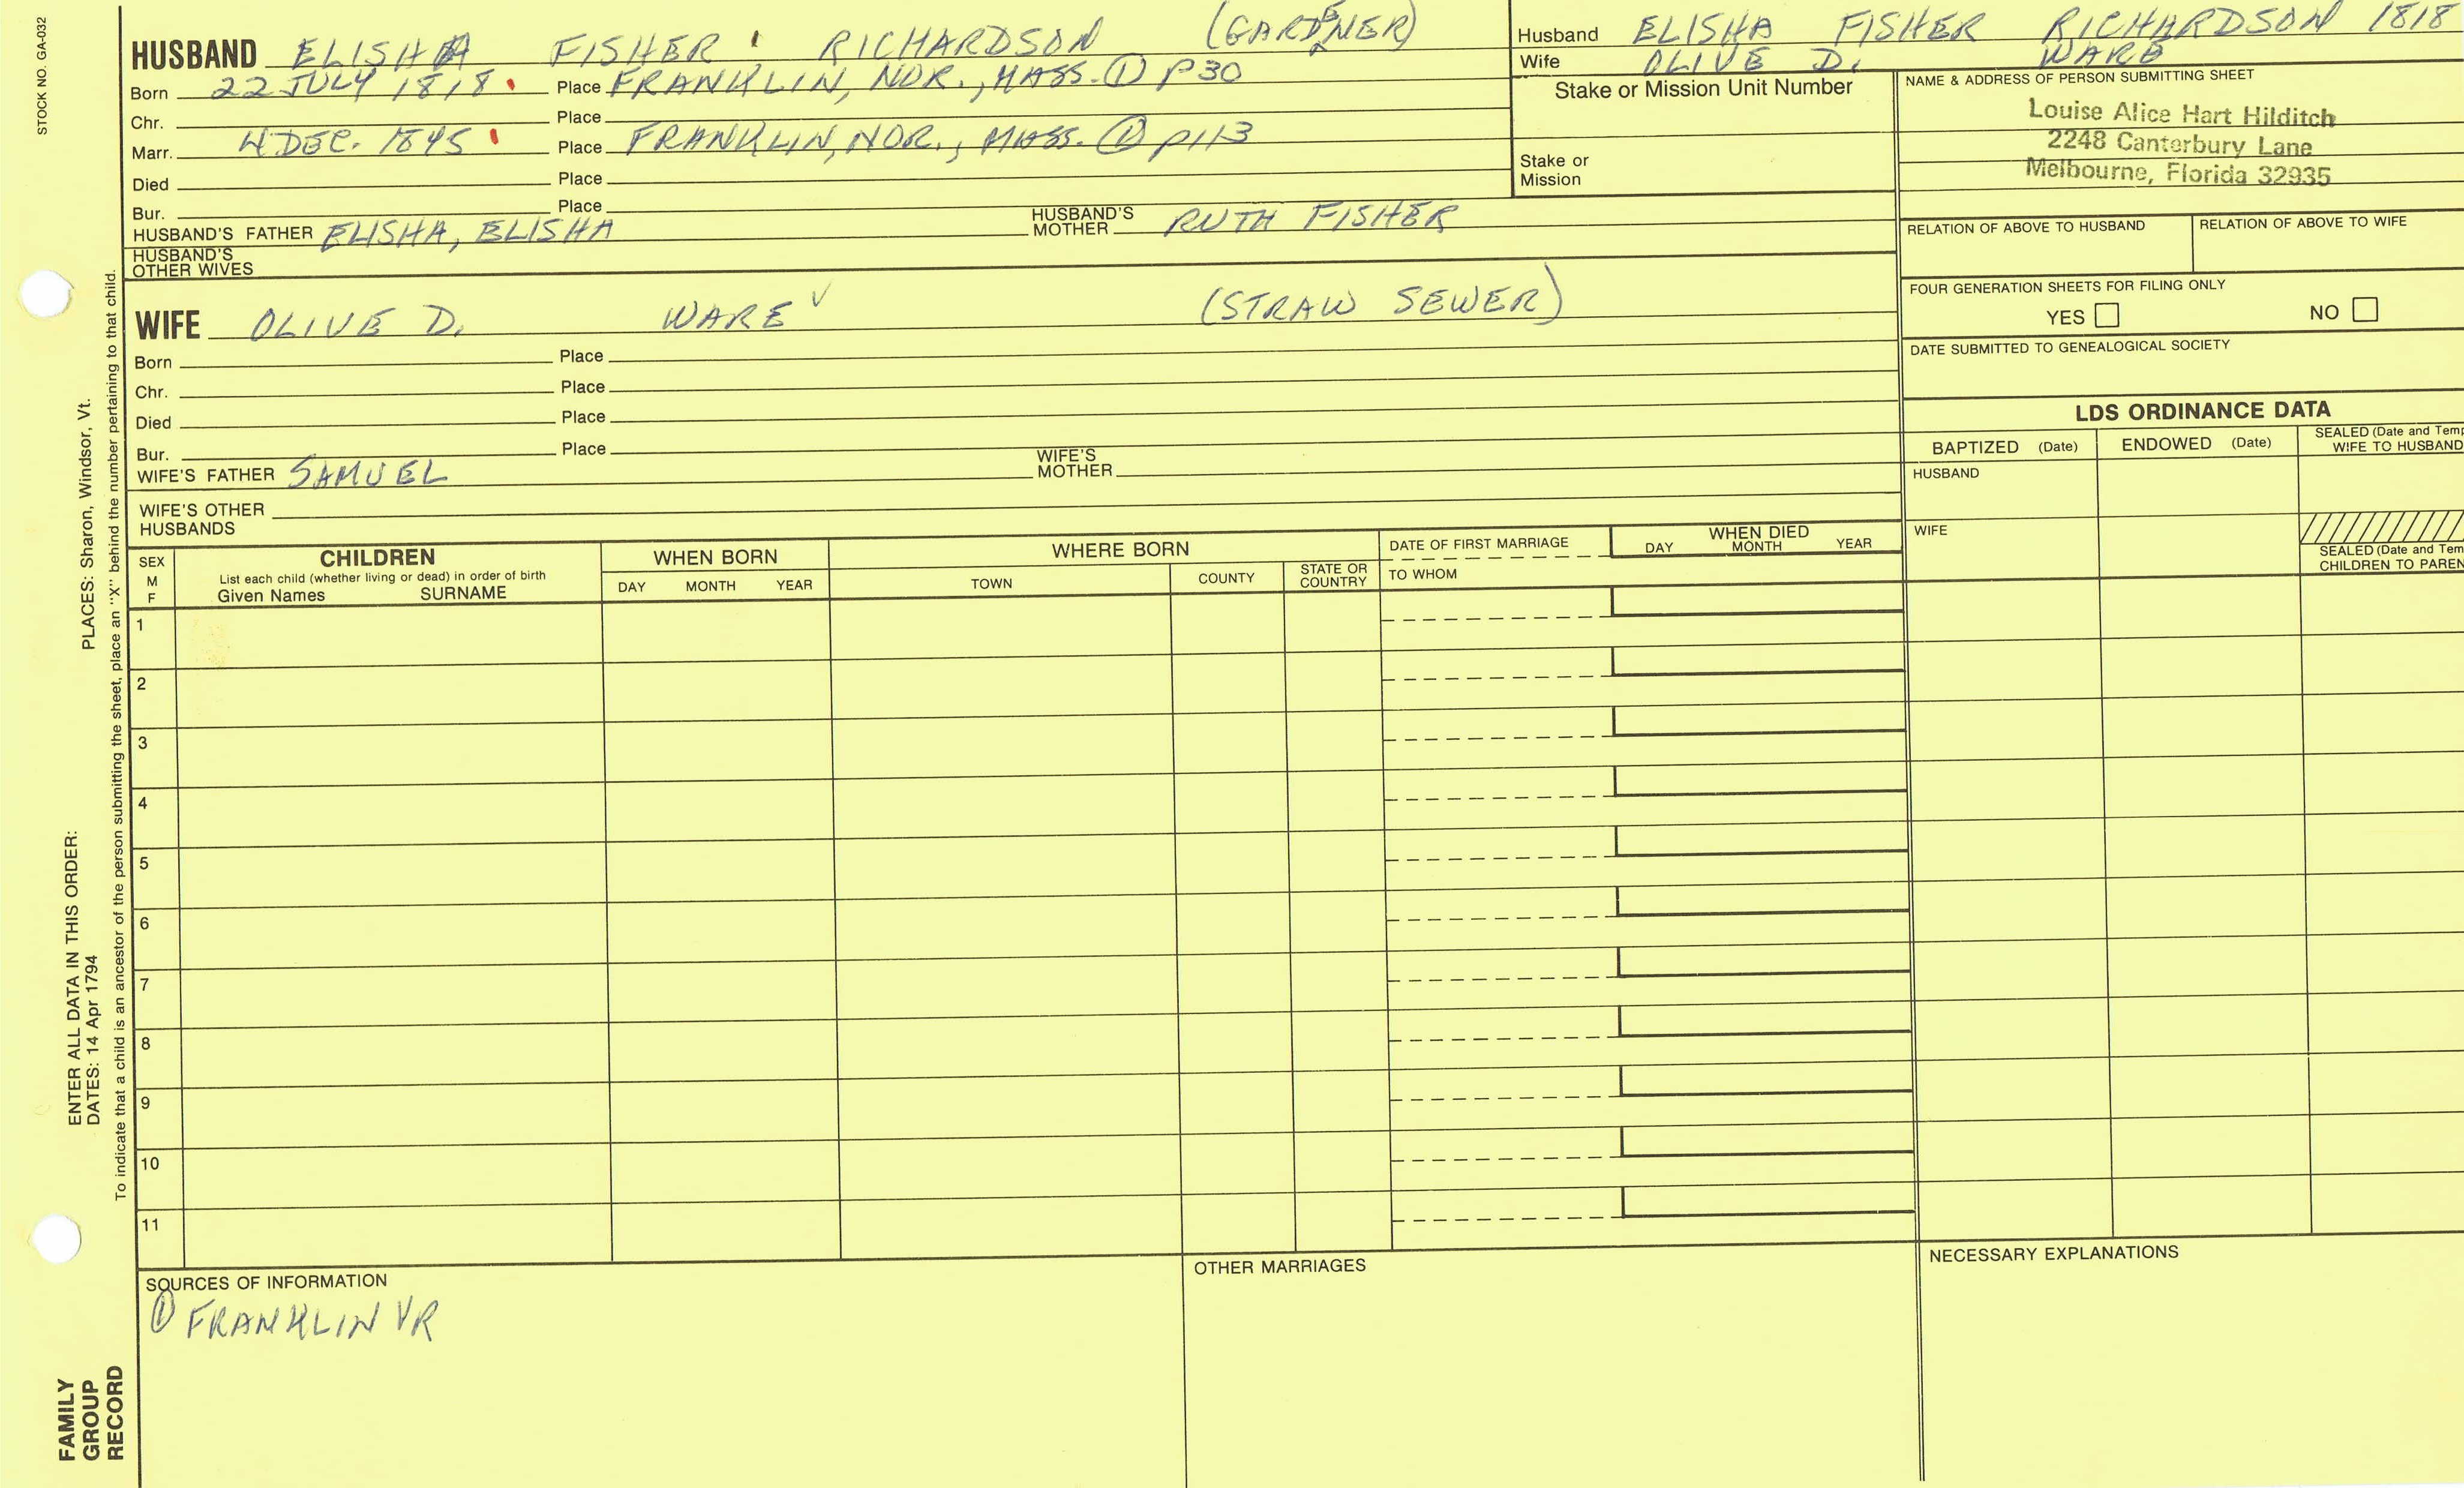 STOCK NO. GA-032
HUSBAND ELISHA FISHER RICHARDSON (GARDENER)
Born 22 JULY 1818 Place FRANKLIN, NOR., MASS. ① P30
Chr. Place
Marr. 4 DEC. 1845 Place FRANKLIN, NOR., MASS. ① p113
Died Place
Bur. Place
HUSBAND'S FATHER ELISHA, ELISHA HUSBAND'S MOTHER RUTH FISHER
HUSBAND'S OTHER WIVES
WIFE OLIVE D. WARE √ (STRAW SEWER)
Born Place
Chr. Place
Died Place
Bur. Place
WIFE'S FATHER SAMUEL WIFE'S MOTHER
WIFE'S OTHER HUSBANDS
Husband ELISHA FISHER RICHARDSON 1818
Wife OLIVE D. WARE
Stake or Mission Unit Number
Stake or Mission
NAME & ADDRESS OF PERSON SUBMITTING SHEET
Louise Alice Hart Hilditch
2248 Canterbury Lane
Melbourne, Florida 32935
RELATION OF ABOVE TO HUSBAND RELATION OF ABOVE TO WIFE
FOUR GENERATION SHEETS FOR FILING ONLY
YES NO
DATE SUBMITTED TO GENEALOGICAL SOCIETY
LDS ORDINANCE DATA
BAPTIZED (Date) ENDOWED (Date) SEALED (Date and Temp
WIFE TO HUSBAND
HUSBAND
WIFE
SEALED (Date and Tem
CHILDREN TO PAREN
SEX
M
F
CHILDREN
List each child (whether living or dead) in order of birth
Given Names SURNAME
WHEN BORN
DAY MONTH YEAR
WHERE BORN
TOWN COUNTY STATE OR COUNTRY
DATE OF FIRST MARRIAGE
TO WHOM
WHEN DIED
DAY MONTH YEAR
1
2
3
4
5
6
7
8
9
10
11
SOURCES OF INFORMATION
① FRANKLIN VR
OTHER MARRIAGES
NECESSARY EXPLANATIONS
PLACES: Sharon, Windsor, Vt.
ENTER ALL DATA IN THIS ORDER:
DATES: 14 Apr 1794
To indicate that a child is an ancestor of the person submitting the sheet, place an "X" behind the number pertaining to that child.
FAMILY
GROUP
RECORD